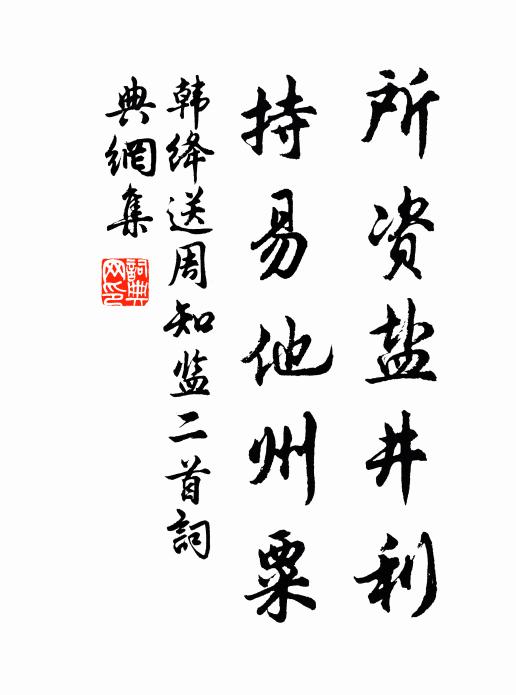 所资盐井利
持易他州粟
韩绛送周知监二首詞
典網集
詞典网印